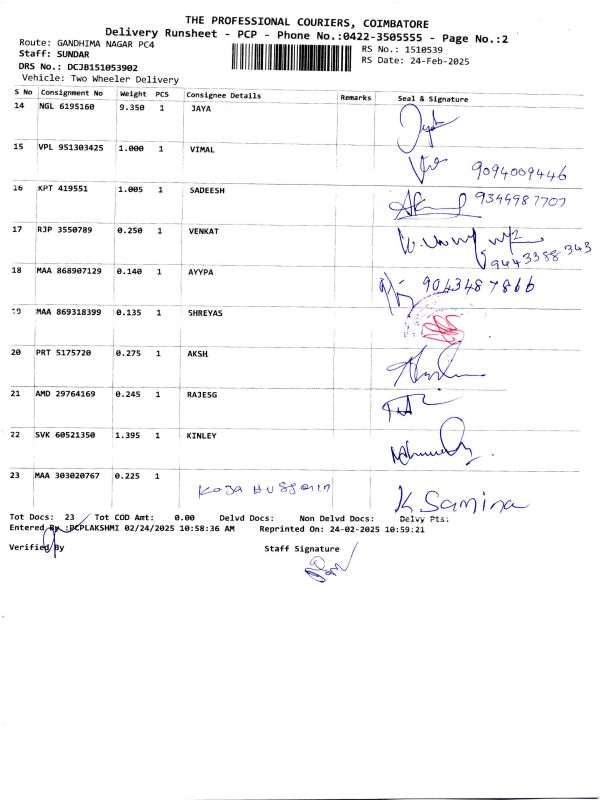 THE PROFESSIONAL COURIERS, COIMBATORE
Delivery Runsheet - PCP - Phone No.:0422-3505555 - Page No.:2
Route: GANDHIMA NAGAR PC4
RS No.: 1510539
Staff: SUNDAR
RS Date: 24-Feb-2025
DRS No.: DCJB151053902
Vehicle: Two Wheeler Delivery
S No Consignment No Weight PCS Consignee Details Remarks Seal & Signature
14 NGL 6195160 9.350 1 JAYA
15 VPL 951303425 1.000 1 VIMAL
9094009446
16 KPT 419551 1.005 1 SADEESH
9344987707
17 RJP 3550789 0.250 1 VENKAT
9443388343
18 MAA 868907129 0.140 1 AYYPA
9043487866
19 MAA 869318399 0.135 1 SHREYAS
20 PRT 5175720 0.275 1 AKSH
21 AMD 29764169 0.245 1 RAJESG
22 SVK 60521350 1.395 1 KINLEY
23 MAA 303020767 0.225 1
Koja Hussain K Samina
Tot Docs: 23 Tot COD Amt: 0.00 Delvd Docs: Non Delvd Docs: Delvy Pts:
Entered By :PCPLAKSHMI 02/24/2025 10:58:36 AM Reprinted On: 24-02-2025 10:59:21
Verified By Staff Signature